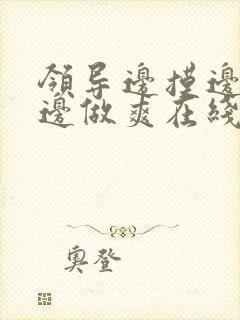 領导邊摸邊
邊做爽在綫
奥登